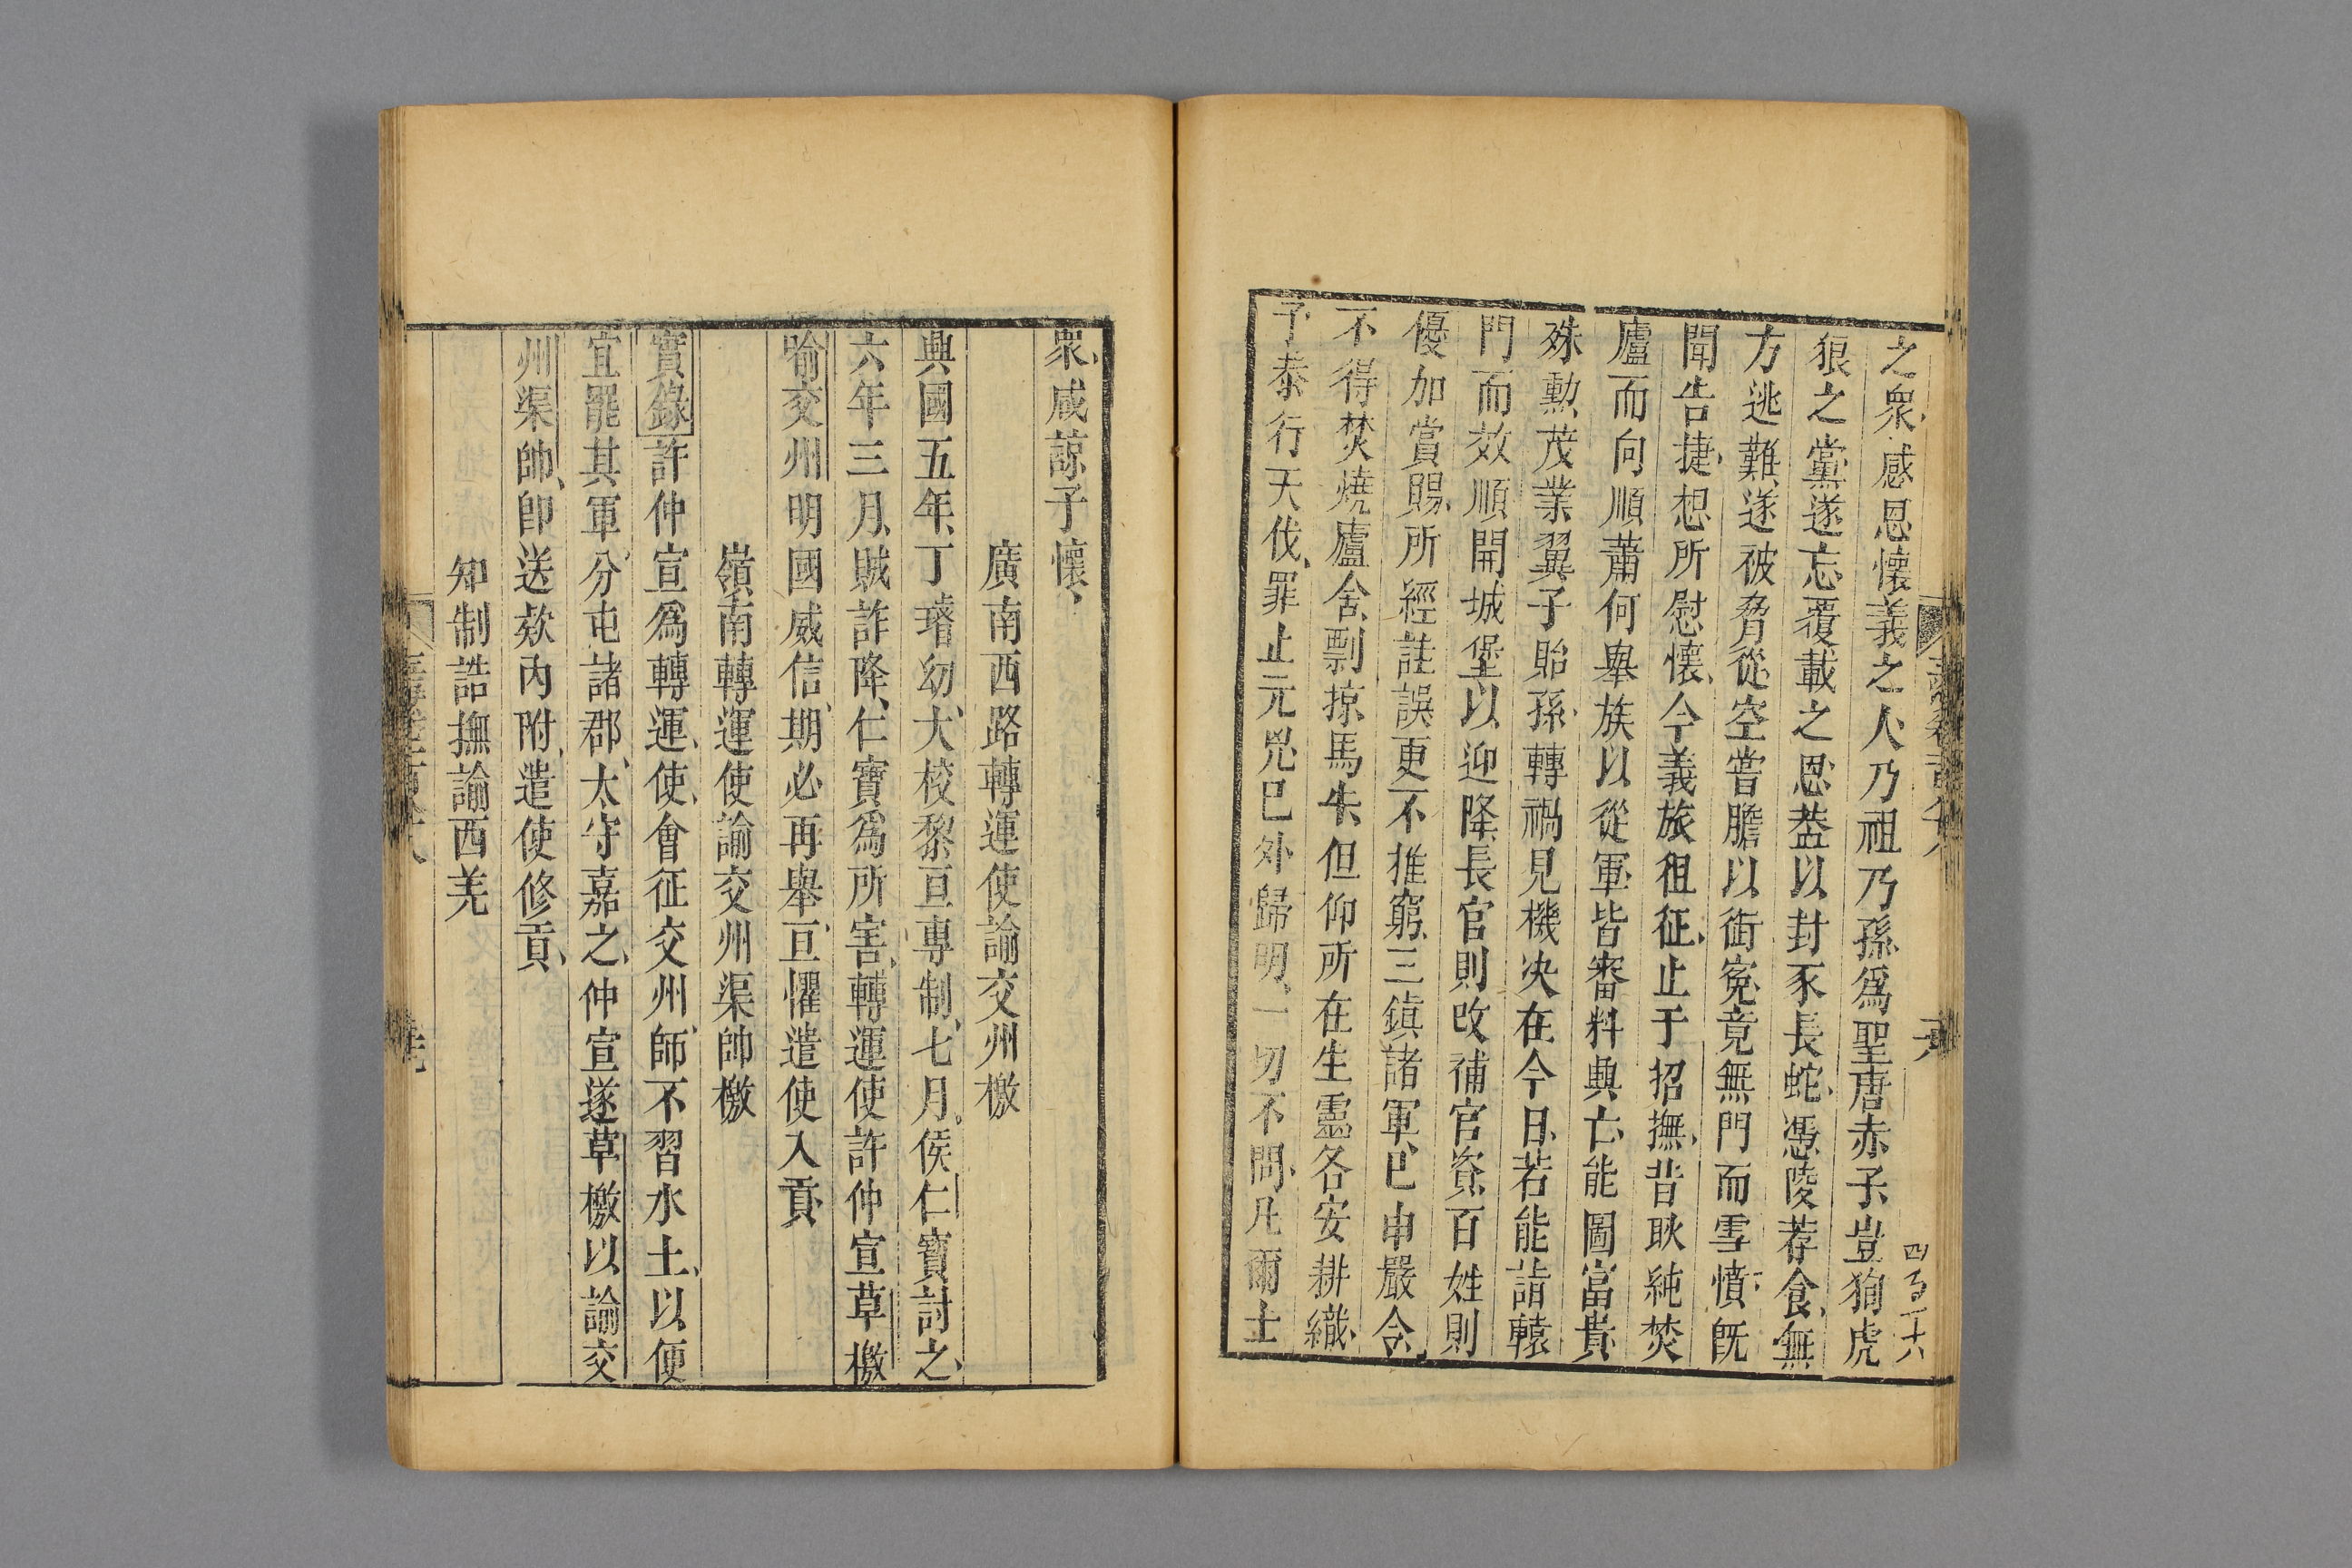 之衆感恩懷義之人乃祖乃孫爲聖唐赤子豈狥虎
狼之黨遂忘覆載之恩葢以封豕長蛇憑陵荐食無
方逃難遂被脅從空嘗膽以銜寃竟無門而雪憤旣
聞告捷想所慰懷今義旅徂征止于招撫昔耿純焚
廬而向順蕭何舉族以從軍皆審料興亡能圖富貴
殊勲茂業翼子貽孫轉禍見機决在今日若能詣轅
門而效順開城堡以迎降長官則改補官資百姓則
優加賞賜所經詿誤更不推窮三鎮諸軍已申嚴令
不得焚燒廬舍剽掠馬牛但仰所在生靈各安耕織
予恭行天伐罪止元兇已外歸明一切不問凡爾士
衆咸諒予懷
廣南西路轉運使諭交州檄
興國五年丁璿幼大校黎亘專制七月侯仁寶討之
六年三月賊詐降仁寶爲所害轉運使許仲宣草檄
喻交州明國威信期必再舉亘懼遣使入貢
嶺南轉運使諭交州渠帥檄
實錄許仲宣爲轉運使會征交州師不習水土以便
宜罷其軍分屯諸郡太守嘉之仲宣遂草檄以諭交
州渠帥卽送欵內附遣使修貢
知制誥撫諭西羌